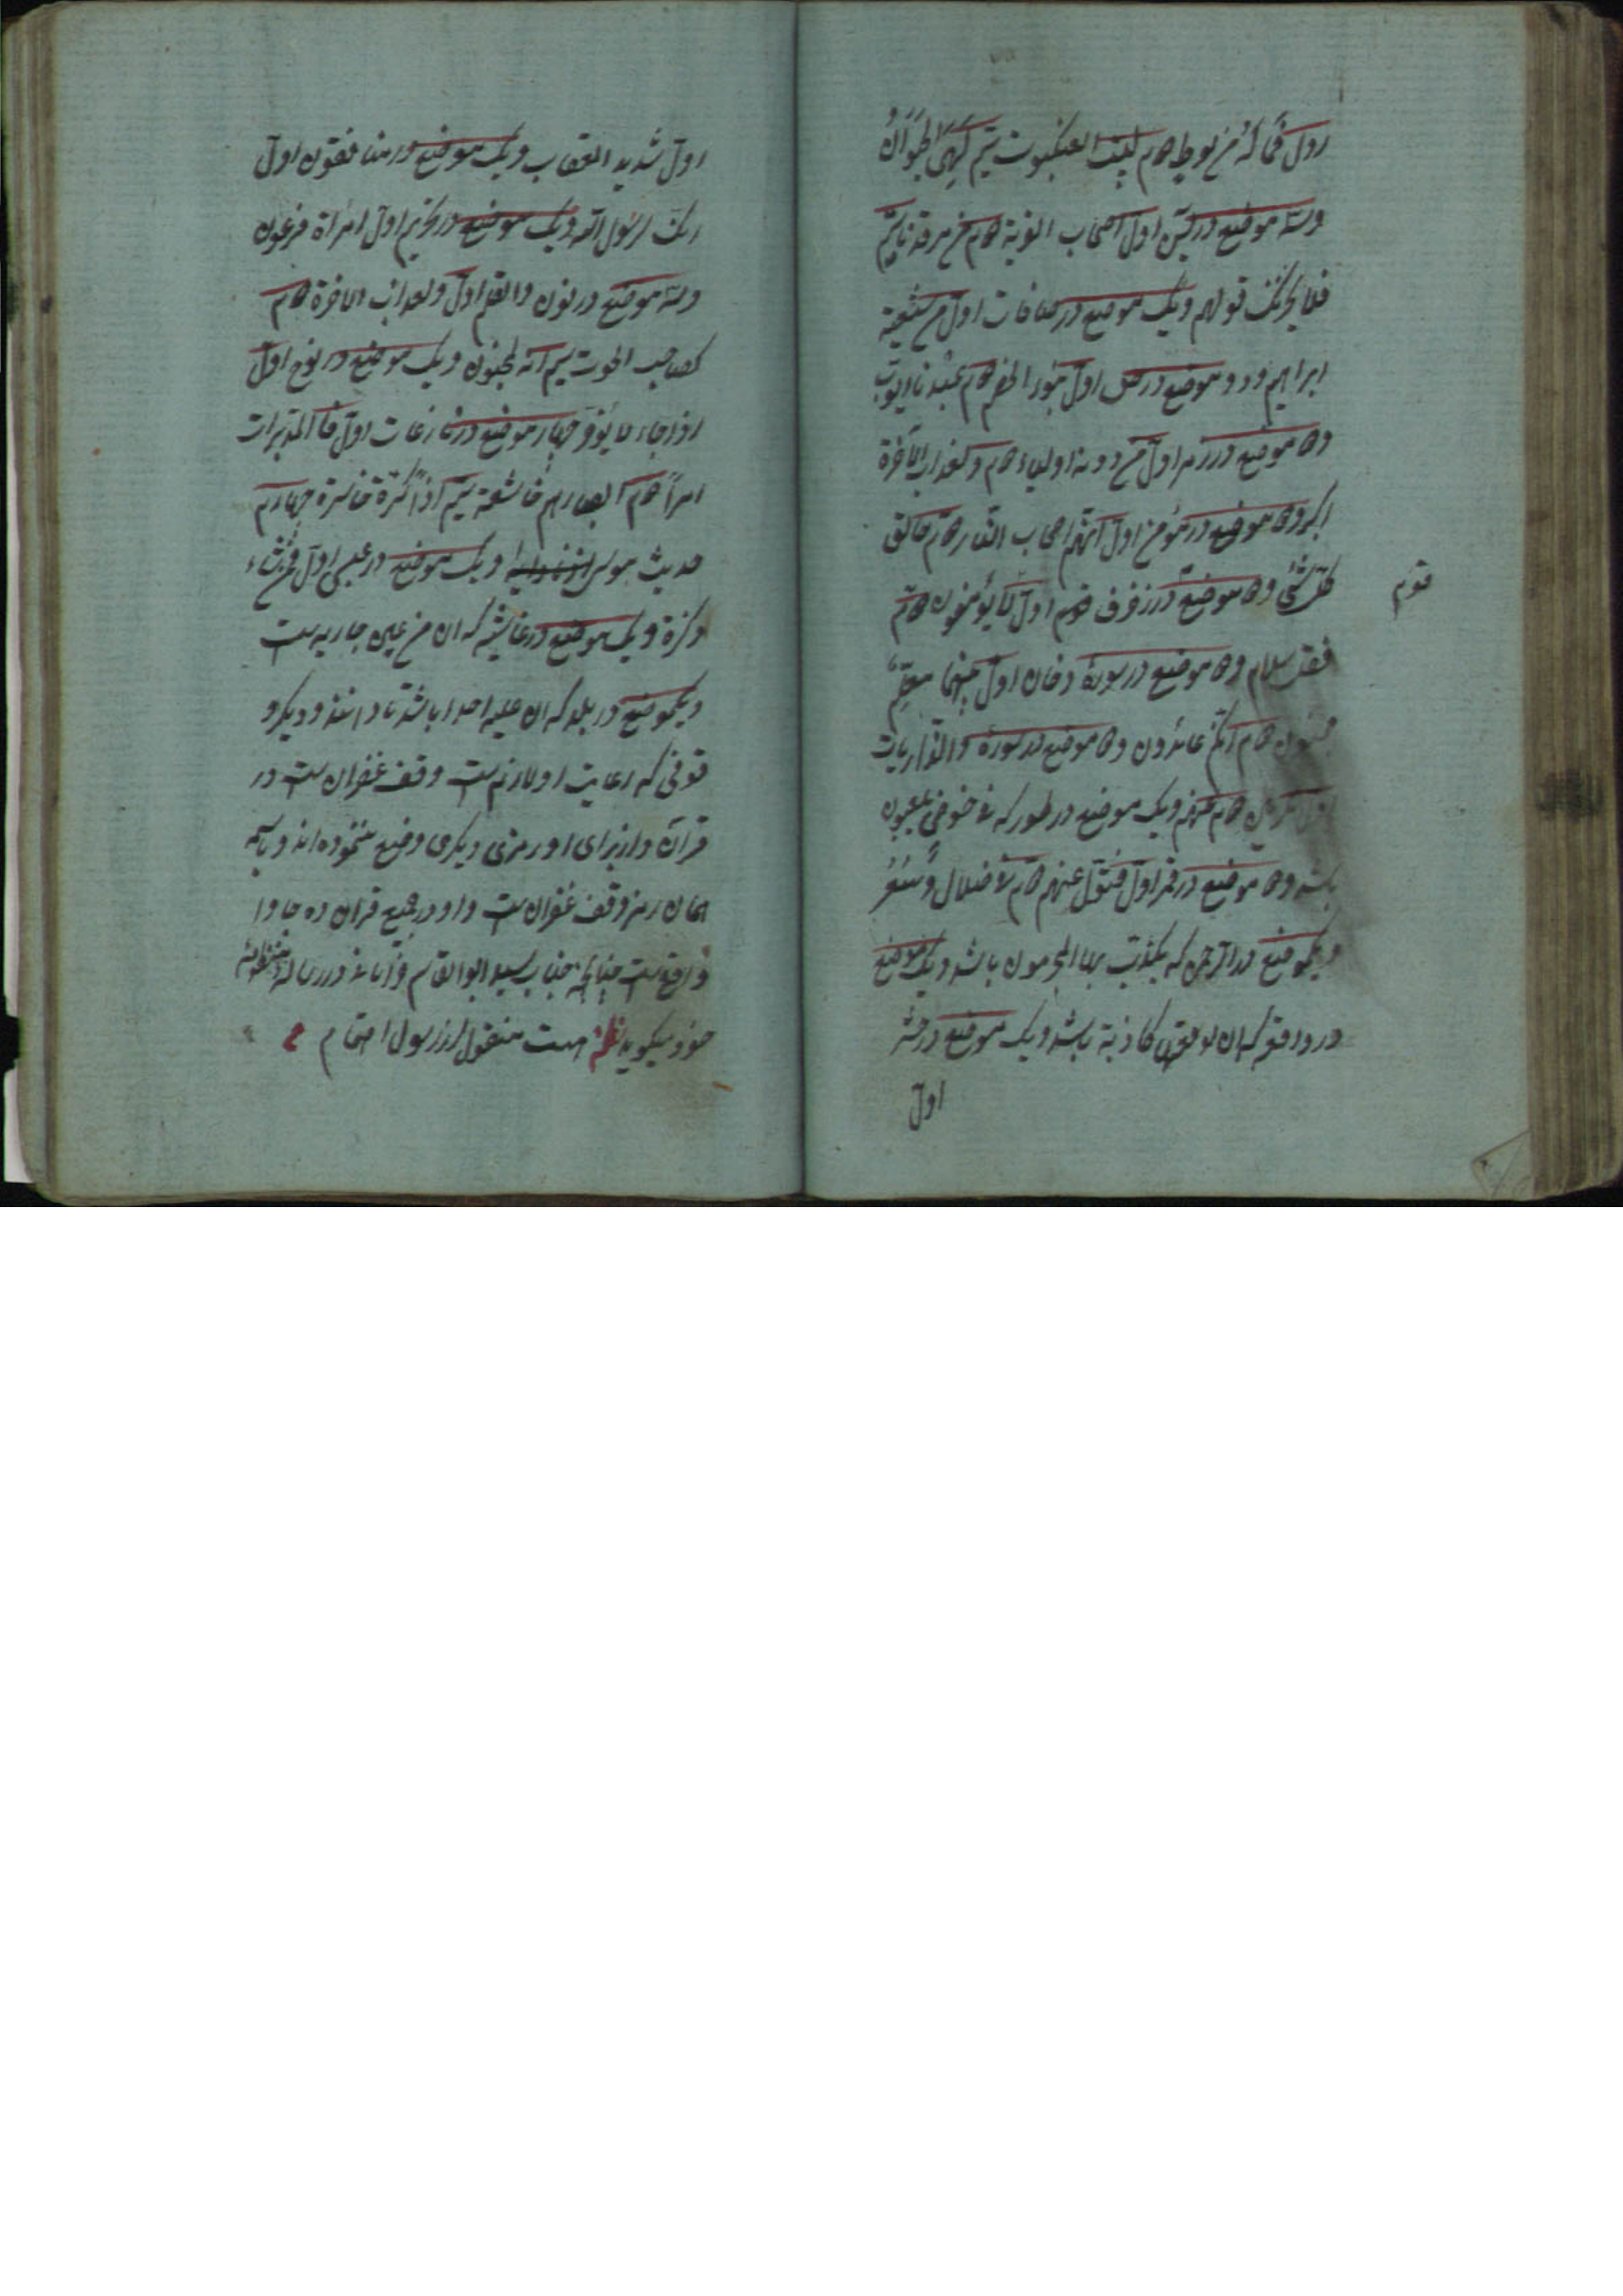 اول فآمن له لوط دوم لبیت العنکبوت سیم لهی الحیوان
وسه موضع در یس اول اصحاب القریة دوم من مرقدنا سیم
فلا یحزنک قولهم ویک موضع در صافات اول من شیعته
ابراهیم ودو موضع در ص اول نبؤا الخصم دوم عبدنا ایوب
ودو موضع در زمر اول من دونه اولیاء دوم ولعذاب الآخرة
اکبر ودو موضع در مؤمن اول انهم اصحاب النار دوم خالق
کل شئ ودو موضع در زخرف اول لا یؤمنون دوم
قوم
فقل سلام ودو موضع در سورهٔ دخان اول معلم
مجنون دوم انکم عائدون ودو موضع در سورهٔ والذاریات
اول دوم ویک موضع در طور که فی خوض یلعبون
باشد ودو موضع در قمر اول فتول عنهم دوم فی ضلال وسعر
ویکموضع در الرحمن که یکذب بها المجرمون باشد ویک موضع
در واقعه که آن لوقعتها کاذبة باشد ویک موضع در حشر
اول
اول شدید العقاب ویک موضع در منافقون اول
انک لرسول الله ویک موضع در تحریم اول امراة فرعون
وسه موضع در نون والقلم اول ولعذاب الاخرة دوم
کصاحب الحوت سیم انه لمجنون ویک موضع در نوح اول
اذا جاء لا یؤخر چهار موضع در نازعات اول فالمدبرات
امرا دوم ابصارهم خاشعة سیم اذا کرة خاسرة چهارم
حدیث موسی ویک موضع در عبس اول فمن شاء
ذکره ویک موضع در غاشیه که آن من عین جاریه است
ویکموضع در بلد که آن علیه احد باشد تا دانند ودیکر و
قوفی که رعایت او لازم است وقف غفران است در
قرآن و از برای او رمزی دیکری وضع ننموده اند وباسم
همان رمز وقف غفران است واو در جمیع قران ده جا وا
واقع است چنانچه جناب سید ابوالقاسم در رساله منظومه
خود میکوید نظم هست منقول از رسول